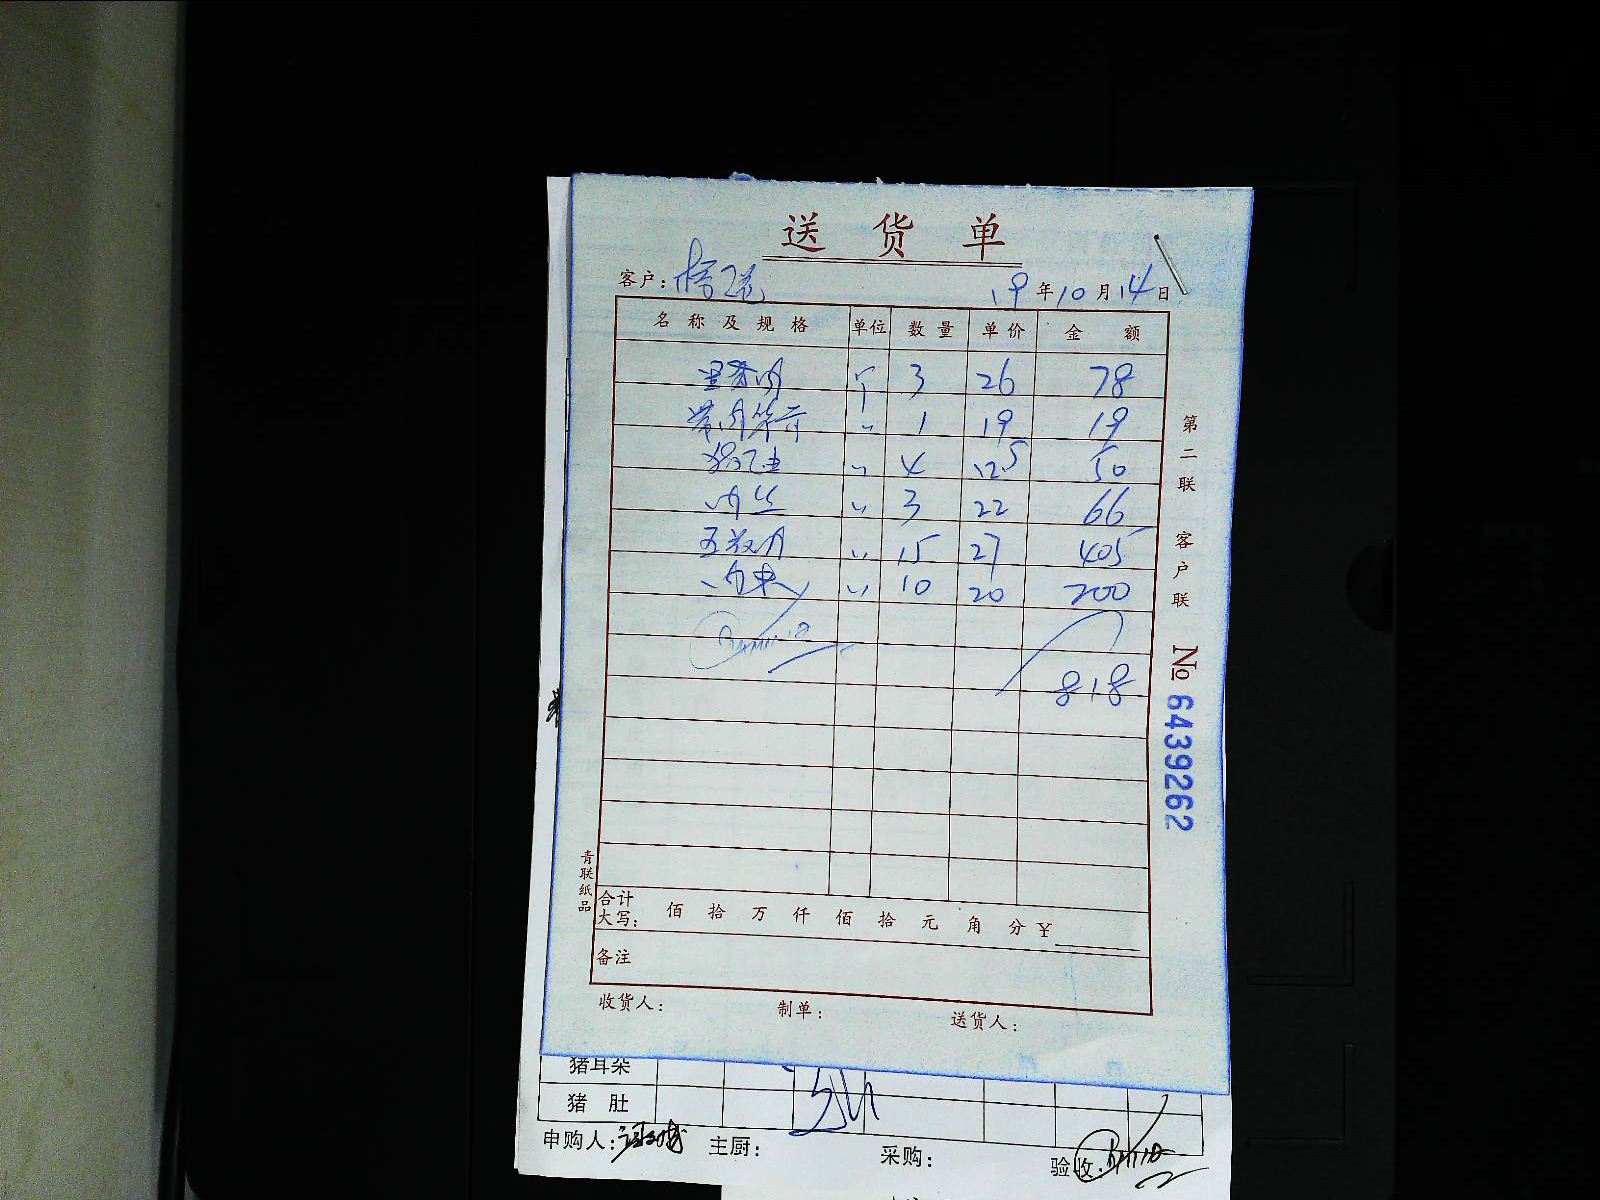 送货单
客户: 19年10月14日
名称及规格 单位 数量 单价 金额
里脊肉 个 3 26 78
带肉筒骨 〃 1 19 19
〃 4 12.5 50
肉丝 〃 3 22 66
五花肉 〃 15 27 405
肉末 〃 10 20 200
818
第二联 客户联
No 6439262
青联纸品
合计大写: 佰 拾 万 仟 佰 拾 元 角 分 ¥
备注
收货人: 制单: 送货人:
猪耳朵
猪肚
申购人: 主厨: 采购: 验收: